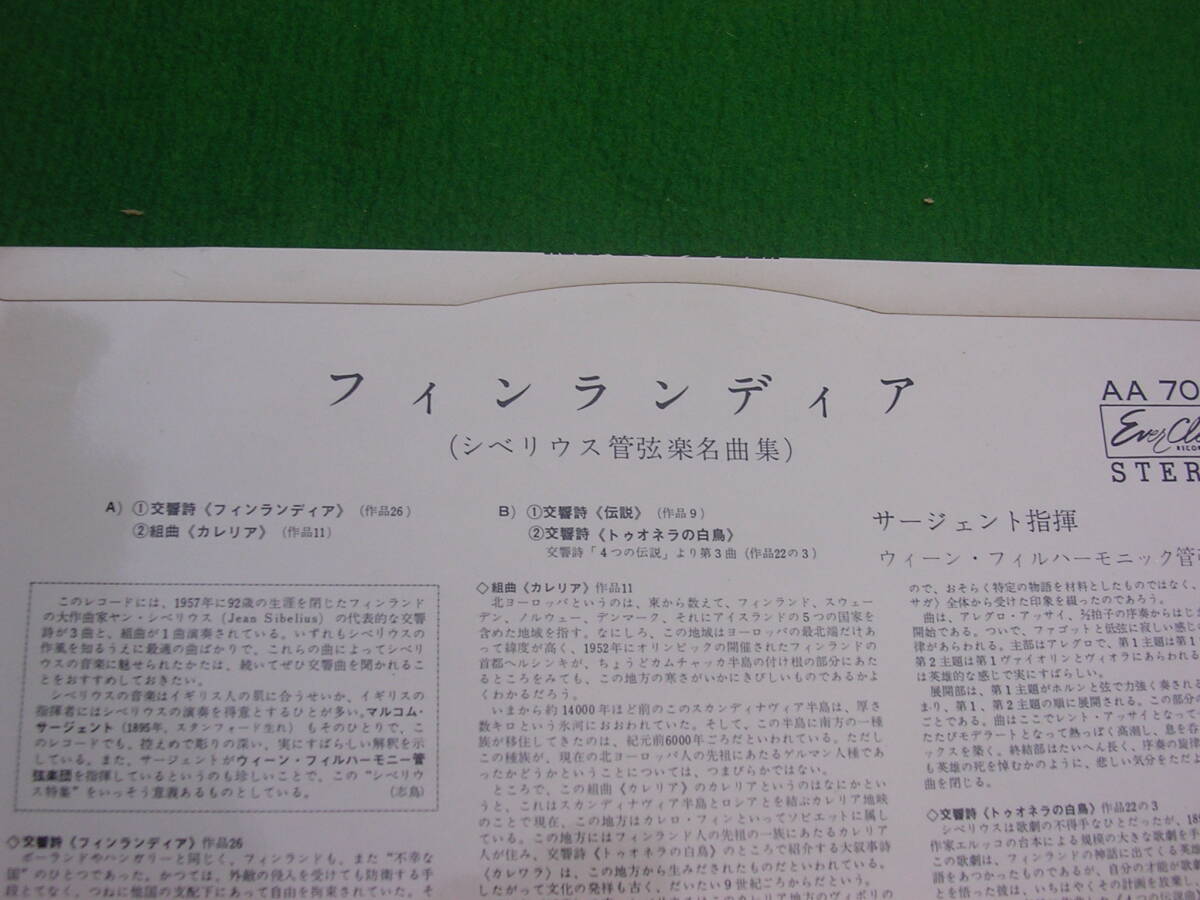 フィンランディア
(シベリウス管弦楽名曲集)
AA 70
Ever Cla
RECOR
STER
A) ①交響詩《フィンランディア》 (作品26)
②組曲《カレリア》 (作品11)
B) ①交響詩《伝説》 (作品9)
②交響詩《トゥオネラの白鳥》
交響詩「4つの伝説」より第3曲 (作品22の3)
サージェント指揮
ウィーン・フィルハーモニック管
このレコードには、1957年に92歳の生涯を閉じたフィンランド
の大作曲家ヤン・シベリウス (Jean Sibelius) の代表的な交響
詩が3曲と、組曲が1曲演奏されている。いずれもシベリウスの
作風を知るうえに最適の曲ばかりで、これらの曲によってシベリ
ウスの音楽に魅せられたかたは、続いてぜひ交響曲を聞かれるこ
とをおすすめしておきたい。
シベリウスの音楽はイギリス人の肌に合うせいか、イギリスの
指揮者にはシベリウスの演奏を得意とするひとが多い。マルコム・
サージェント (1895年、スタンフォード生れ) もそのひとりで、こ
のレコードでも、控えめで彫りの深い、実にすばらしい解釈を示
している。また、サージェントがウィーン・フィルハーモニー管
弦楽団を指揮しているというのも珍しいことで、この“シベリウ
ス特集”をいっそう意義あるものとしている。 (志鳥)
◇交響詩《フィンランディア》作品26
ポーランドやハンガリーと同じく、フィンランドも、また“不幸な
国”のひとつであった。かつては、外敵の侵入を受けても防衛する手
段とてなく、つねに他国の支配下にあって自由を拘束されていた。そ
◇組曲《カレリア》作品11
北ヨーロッパというのは、東から数えて、フィンランド、スウェー
デン、ノルウェー、デンマーク、それにアイスランドの5つの国家を
含めた地域を指す。なにしろ、この地域はヨーロッパの最北端だけあ
って緯度が高く、1952年にオリンピックの開催されたフィンランドの
首都ヘルシンキが、ちょうどカムチャッカ半島の付け根の部分にあた
るところをみても、この地方の寒さがいかにきびしいものであるかよ
くわかるだろう。
いまから約14000年ほど前のこのスカンディナヴィア半島は、厚さ
数キロという氷河におおわれていた。そして、この半島に南方の一種
族が移住してきたのは、紀元前6000年ごろだといわれている。ただし
この種族が、現在の北ヨーロッパ人の先祖にあたるゲルマン人種であ
ったかどうかということについては、つまびらかではない。
ところで、この組曲《カレリア》のカレリアというのはなにかとい
うと、これはスカンディナヴィア半島とロシアとを結ぶカレリア地峡
のことで現在、この地方はカレロ・フィンといってソビエットに属し
ている。この地方にはフィンランド人の先祖の一族にあたるカレリア
人が住み、交響詩《トゥオネラの白鳥》のところで紹介する大叙事詩
《カレワラ》は、この地方から生みだされたものだといわれている。
したがって文化の発祥も古く、だいたい9世紀ごろからだという。
ので、おそらく特定の物語を材料としたものではなく、
サガ) 全体から受けた印象を綴ったのであろう。
曲は、アレグロ・アッサイ、 拍子の序奏からはじま
開始である。ついで、ファゴットと低弦に寂しい感じの
律があらわれる。主部はアレグロで、第1主題は第1
第2主題は第1ヴァイオリンとヴィオラにあらわれる
は英雄的な感じで実にすばらしい。
展開部は、第1主題がホルンと弦で力強く奏される
まり、第1、第2主題の順に展開される。この部分
ごとである。曲はここでレント・アッサイとなって
たたびモデラートとなって熱っぽく高潮し、息を呑
ックスを築く。終結部はたいへん長く、序奏の旋律
も英雄の死を悼むかのように、悲しい気分をただよ
曲を閉じる。
◇交響詩《トゥオネラの白鳥》作品22の3
シベリウスは歌劇の不得手なひとだったが、189
作家エルッコの台本による規模の大きな歌劇を作
この歌劇は、フィンランドの神話に出てくる英雄
語をあつかったものであるが、自分の才能が歌劇
とを悟った彼は、いちはやくその計画を放棄し、